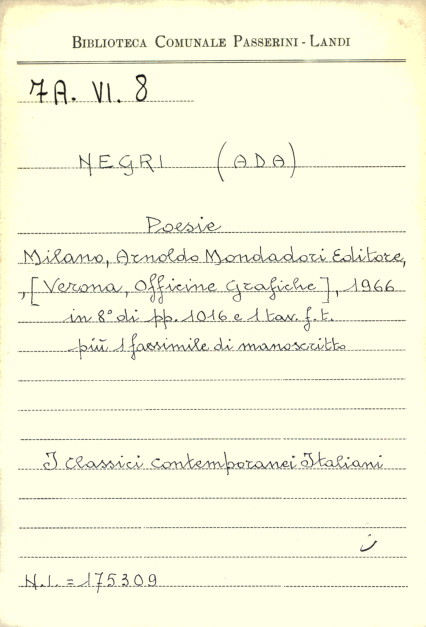 BIBLIOTECA COMUNALE PASSERINI - LANDI
7A. VI. 8
NEGRI (ADA)
Poesie
Milano, Arnoldo Mondadori Editore,
,[Verona, Officine Grafiche], 1966
in 8° di pp. 1016 e 1 tav. f. t.
più 1 facsimile di manoscritto
I classici contemporanei Italiani
N.I. = 175309